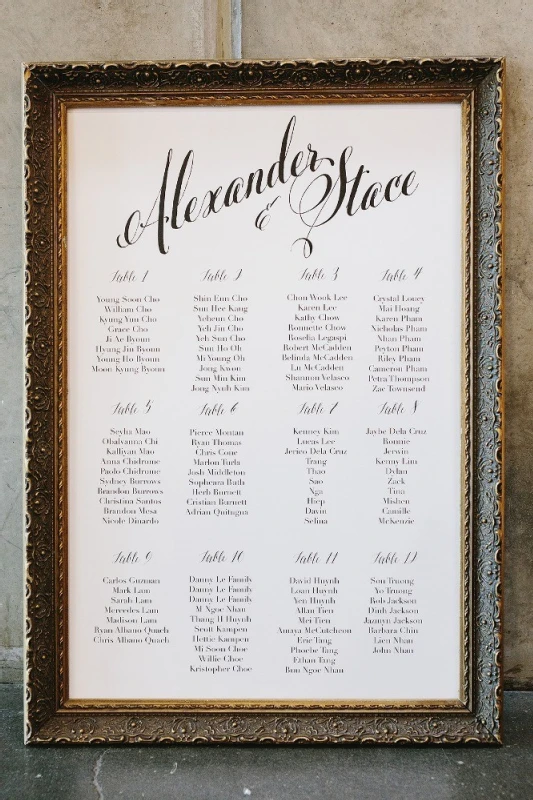 Alexander
& Stace
Table 1
Young Soon Cho
William Cho
Kyung Yun Cho
Grace Cho
Ji Ae Byoun
Hyung Jin Byoun
Young Ho Byoun
Moon Kyung Byoun
Table 2
Shin Eun Choe
Sun Hee Kang
Yeheun Choe
Yeh Jin Cho
Yeh Sun Cho
Sun Ho Oh
Mi Young Oh
Jong Kwon
Sun Min Kim
Jong Nyuh Kim
Table 3
Chun Wook Lee
Karen Lee
Kathy Chow
Ronnette Chow
Roselia Legaspi
Robert McCadden
Belinda McCadden
Lu McCadden
Shannon Velasco
Mario Velasco
Table 4
Crystal Louey
Mai Hoang
Karen Pham
Nicholas Pham
Nhan Pham
Peyton Pham
Riley Pham
Cameron Pham
Petra Thompson
Zac Townsend
Table 5
Seyha Mao
Obalvanna Chi
Kalliyan Mao
Anna Chidrome
Paolo Chidrome
Sydney Burrows
Brandon Burrows
Christina Santos
Brandon Mesa
Nicole Dinardo
Table 6
Pierce Montan
Ryan Thomas
Chris Cone
Marlon Turla
Josh Middleton
Sopheara Buth
Herb Burnett
Cristian Barnett
Adrian Quitugua
Table 7
Kenney Kim
Lucas Lee
Jerico Dela Cruz
Trang
Thao
Sao
Nga
Hiep
Davin
Selina
Table 8
Jaybe Dela Cruz
Ronnie
Jerwin
Kenny Lim
Dylan
Zack
Tina
Mishen
Camille
McKenzie
Table 9
Carlos Guzman
Mark Lam
Sarah Lam
Mercedes Lam
Madison Lam
Ryan Albano Quach
Chris Albano Quach
Table 10
Danny Le Family
Danny Le Family
Danny Le Family
M Ngoc Nhan
Thang H Huynh
Scott Kampen
Hettie Kampen
Mi Soon Choe
Willie Choe
Kristopher Choe
Table 11
David Huynh
Loan Huynh
Yen Huynh
Allan Tien
Mei Tien
Amaya McCutcheon
Eric Tang
Phoebe Tang
Ethan Tang
Bou Ngoc Nhan
Table 12
Son Truong
Yo Truong
Bob Jackson
Dinh Jackson
Jazmyn Jackson
Barbara Chin
Lien Nhan
John Nhan